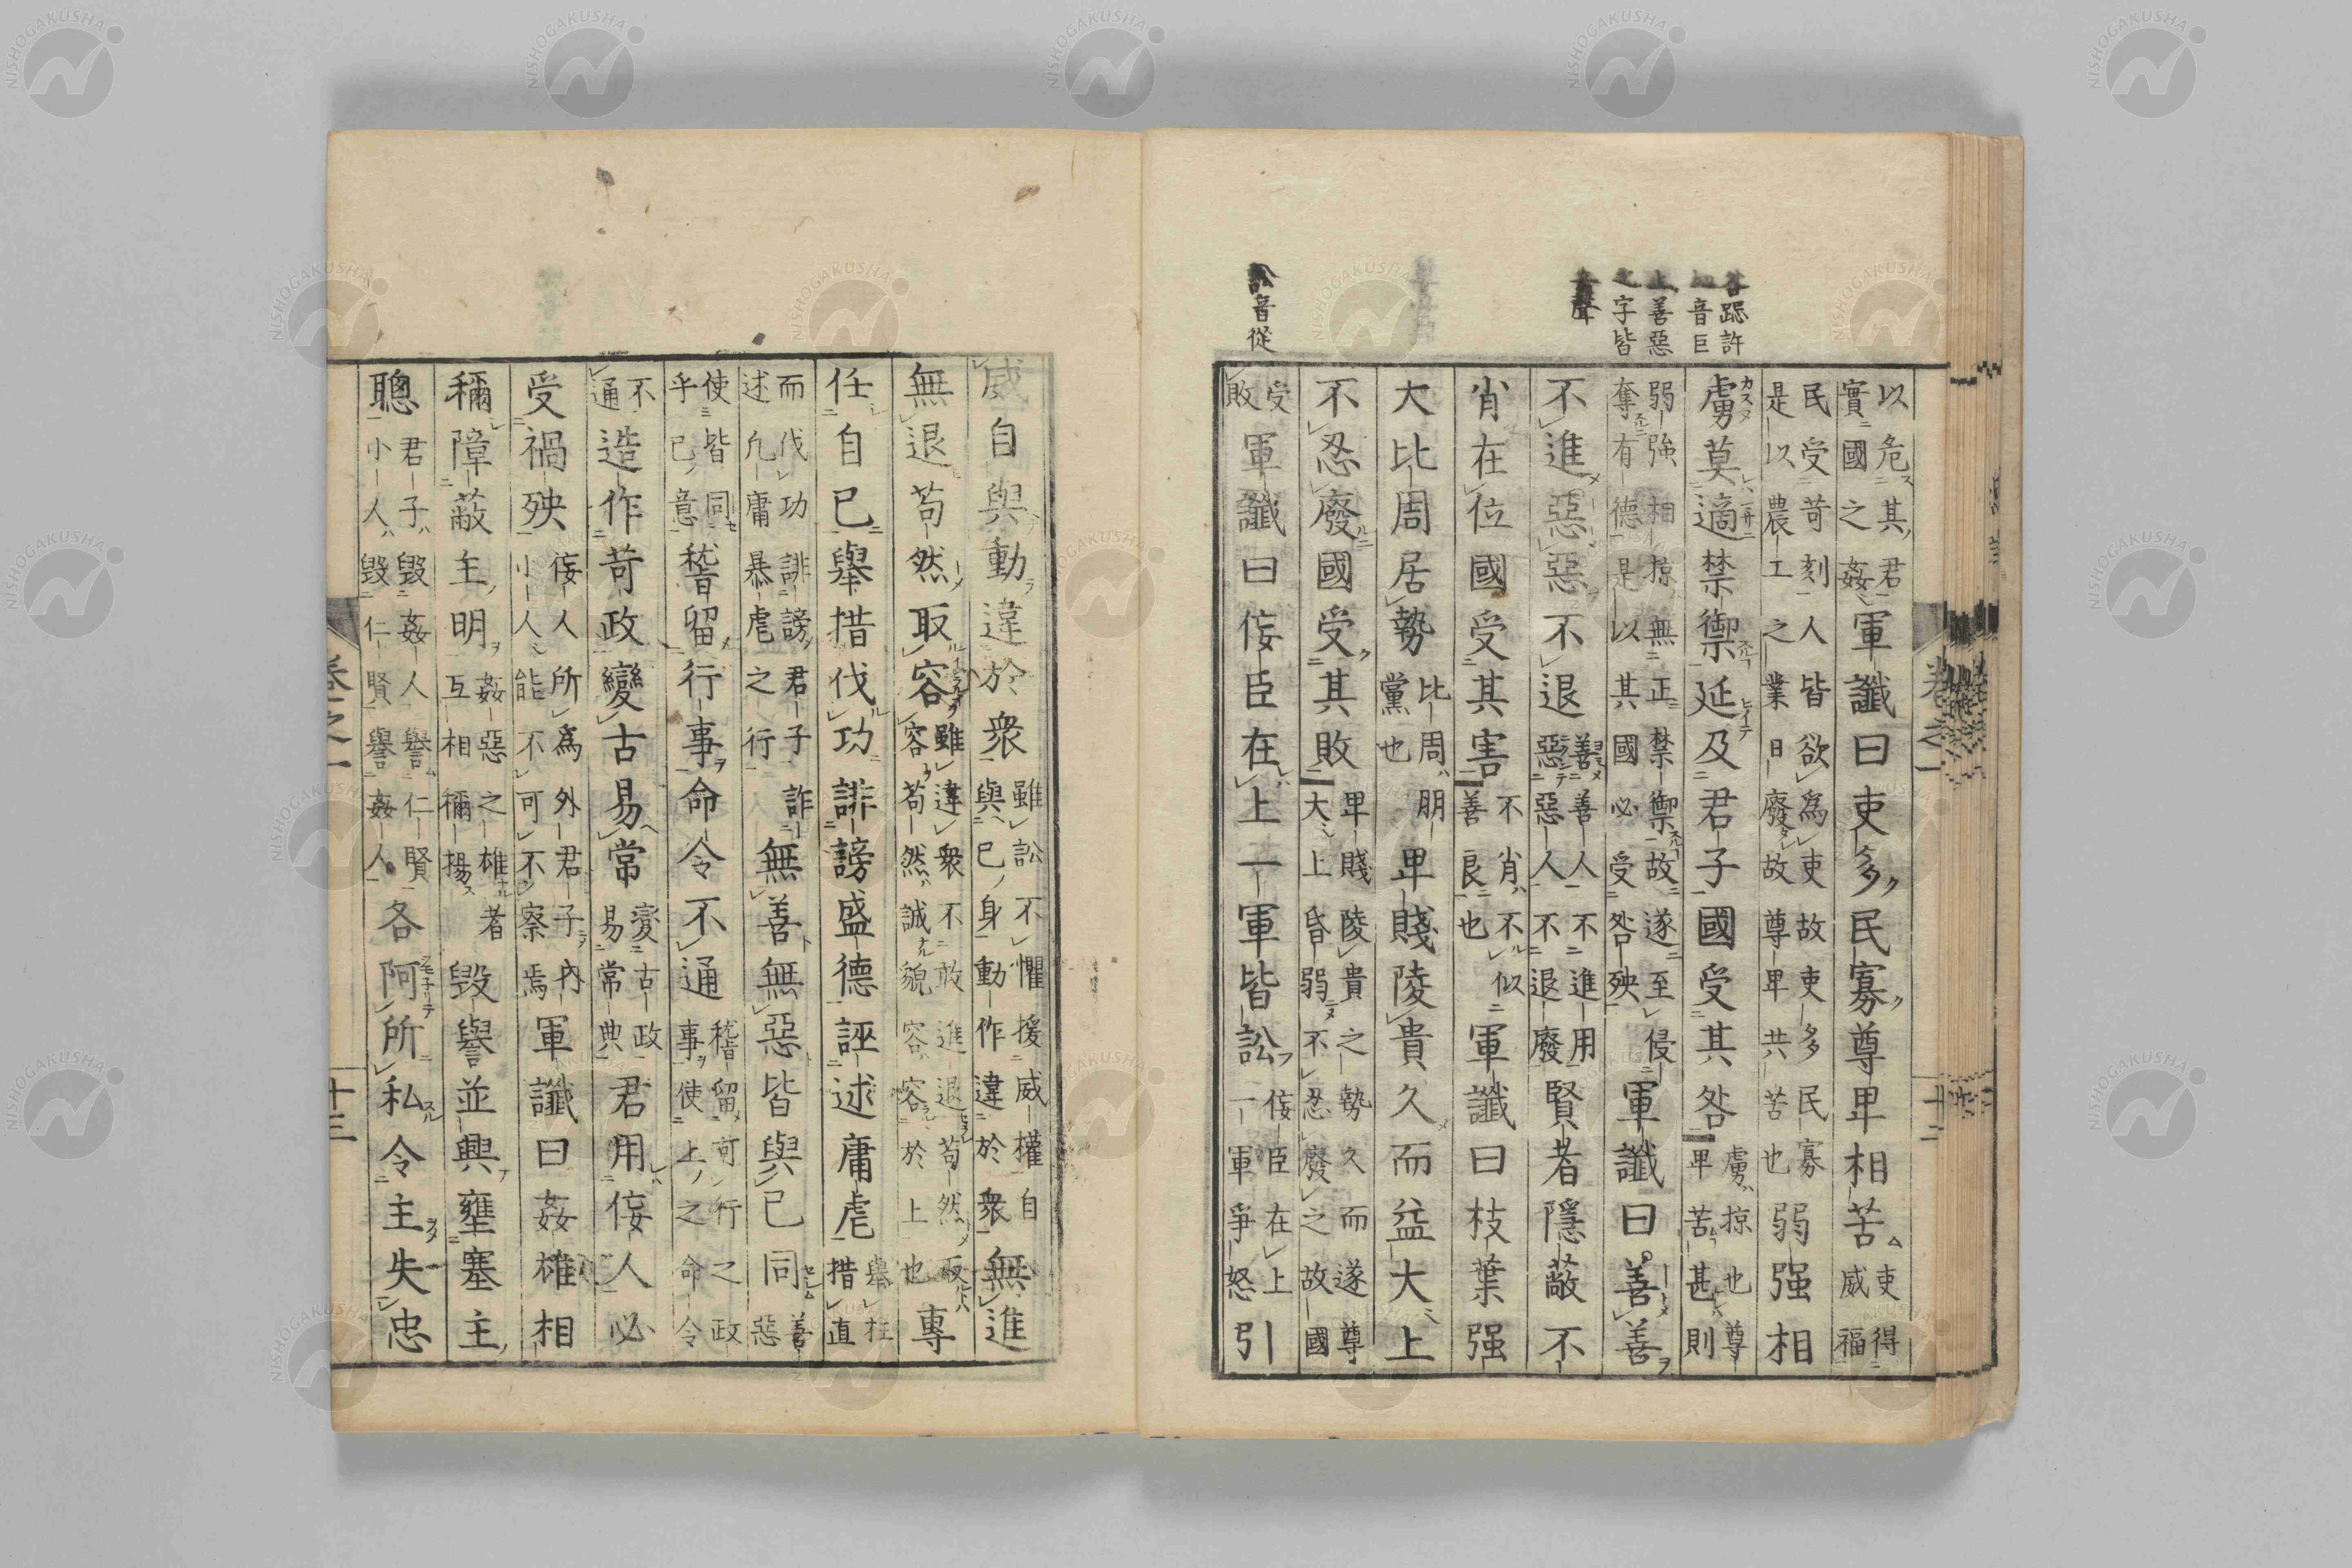 跽許
音巨
善惡
字皆
聲
訟音從
以危其君實國之姦軍讖曰吏多民寡尊卑相苦吏得威福
民受苛刻人皆欲爲吏故吏多民寡是以農工之業日廢故尊卑共苦也弱强相
虜莫適禁御延及君子國受其咎虜掠也尊卑苦甚則
弱強相掠無正禁御故遂至侵奪有德是以其國必受咎殃軍讖曰善善
不進惡惡不退善善人不進用惡惡人不退廢賢者隱蔽不
肖在位國受其害不肖不似善良也軍讖曰枝葉强
大比周居勢比周朋黨也卑賤陵貴久而益大上
不忍廢國受其敗卑賤陵貴之勢久而遂尊大上昏弱不忍廢之故國
受敗軍讖曰侫臣在上一軍皆訟侫臣在上一軍爭怒引
卷之一
十二
威自與動違於衆雖訟不懼援威權自與己身動作違於衆無進
無退苟然取容雖違衆不敢進退苟然取容苟然誠貌容容於上也專
任自己舉措伐功誹謗盛德誣述庸虐舉枉措直
而伐功誹謗君子詐述凡庸暴虐之行無善無惡皆與己同善惡
使皆同乎己意稽留行事命令不通稽留可行之政事使上之命令
不通造作苛政變古易常變古政易常典君用侫人必
受禍殃侫人所爲外君子內小人能不可不察焉軍讖曰姦雄相
稱障蔽主明姦惡之雄者互相稱揚毀譽並興壅塞主
聰君子毀姦人譽仁賢小人毀仁賢譽姦人各阿所私令主失忠
卷之一
十三
NISHOGAKUSHA